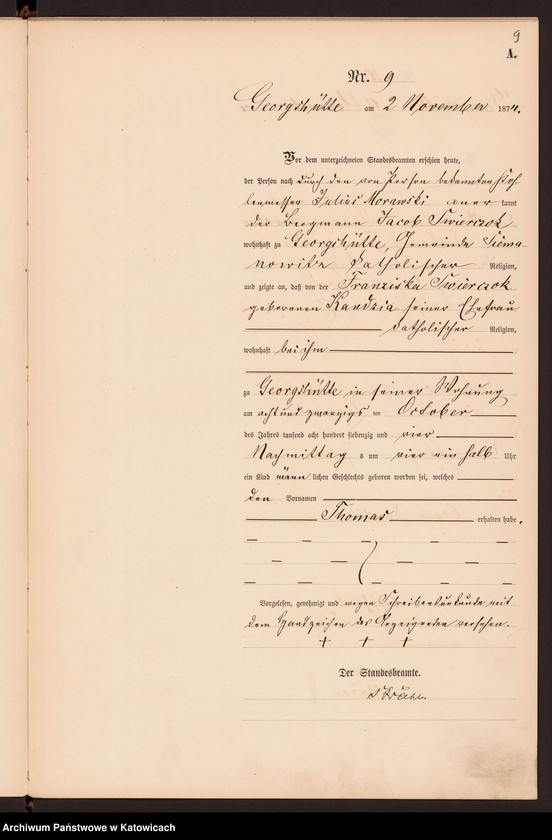 9
A.
Nr. 9
Georgshütte am 2 November 1874.
Vor dem unterzeichneten Standesbeamten erschien heute,
der Person nach durch den von Person bekannten Koh-
lenmesser Julius Morawski aner kannt
der Bergmann Jacob Swierczok
wohnhaft zu Georgshütte, Gemeinde Siema-
nowitz katholischer Religion,
und zeigte an, daß von der Franziska Swierczok
geborenen Kandzia seiner Ehefrau
katholischer Religion,
wohnhaft bei ihm
zu Georgshütte in seiner Wohnung
am acht und zwanzigs ten October
des Jahres tausend acht hundert siebenzig und vier
Nachmittag s um vier ein halb Uhr
ein Kind männ lichen Geschlechts geboren worden sei, welches
den Vornamen
Thomas erhalten habe.
Vorgelesen, genehmigt und wegen Schreibensunkunde mit
dem Handzeichen des Anzeigenden versehen.
+ + +
Der Standesbeamte.
Archiwum Państwowe w Katowicach